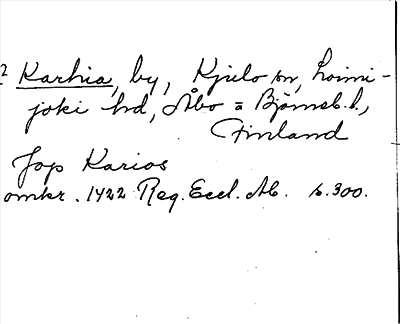 2 Karhia, by, Kjulo sn, Loimi-
joki hd, Åbo = Björneb. l.,
Finland
Jop Karios
omkr. 1422 Reg. Eccl. Ab. s. 300.